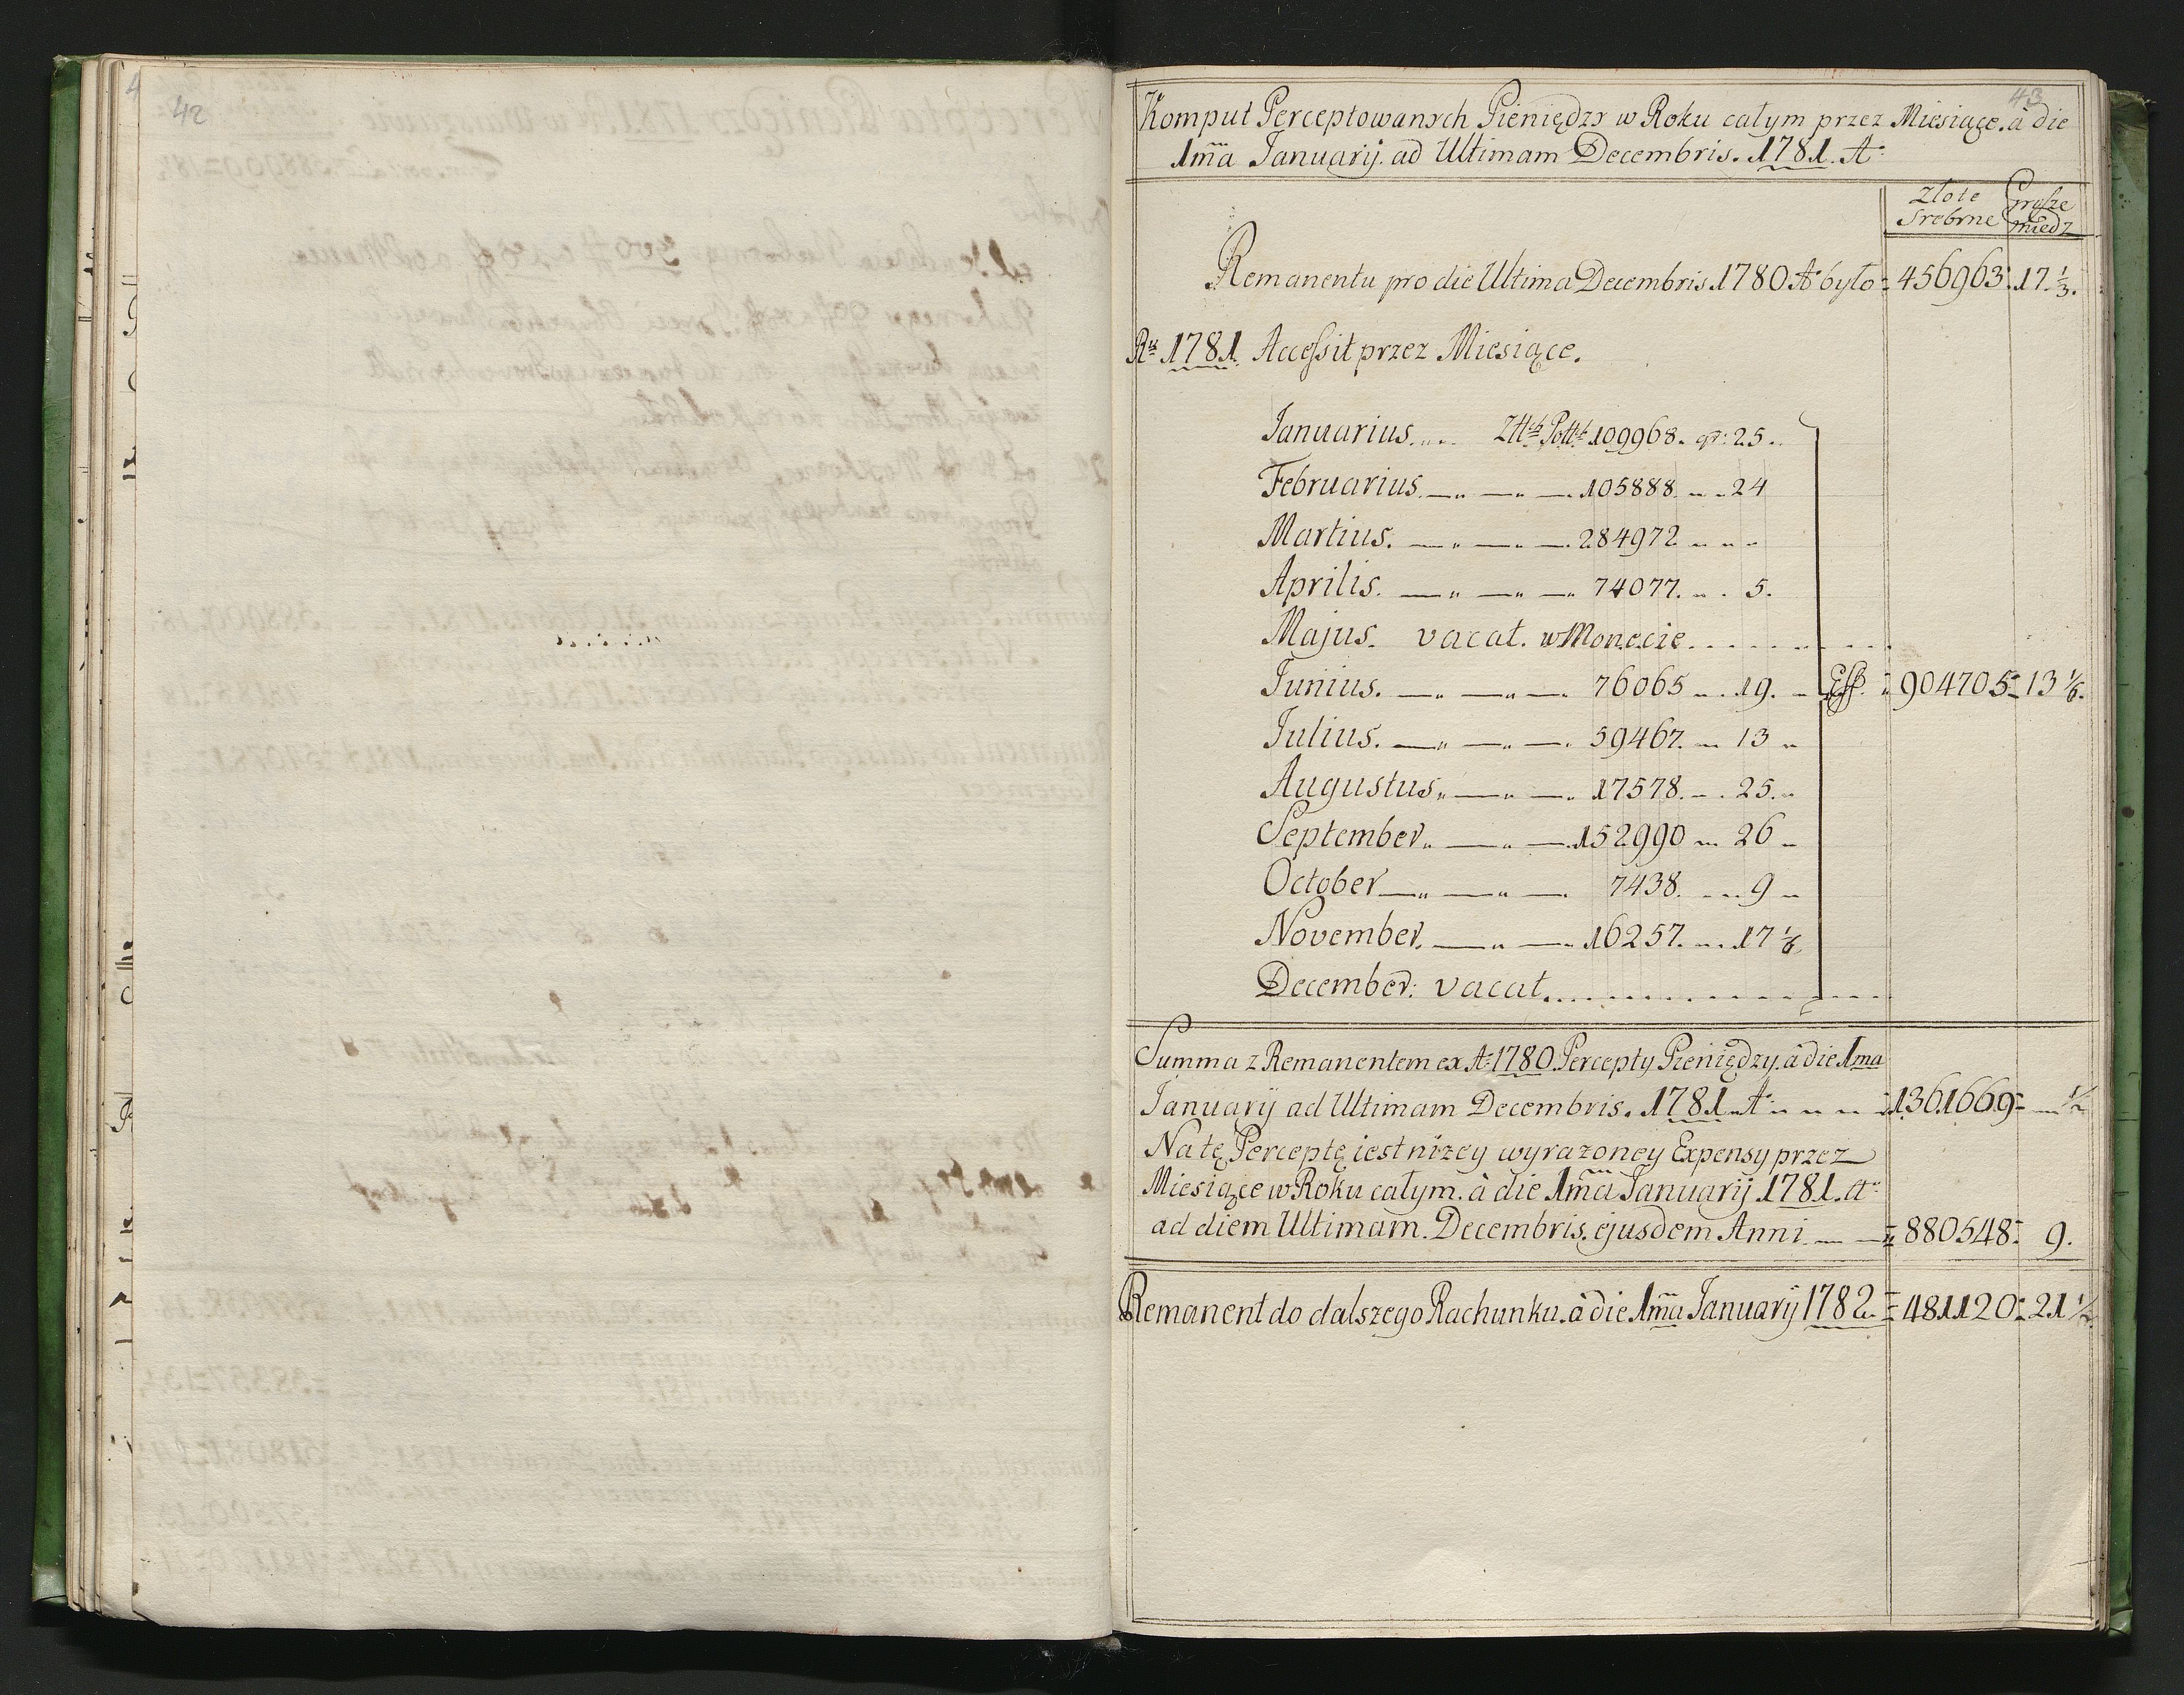 42
43
Komput Perceptowanych Pieniędzy w Roku całym przez Miesiące. à die
1ma Januarij. ad Ultimam Decembris. 1781. A.
Złote Srebrne Grosze miedz
Remanentu pro die Ultima Decembris. 1780 A. było = 456963. 17. 1/3.
Ru 1781. Accessit przez Miesiące.
Januarius.... Złłch Polłch 109968. gr: 25.
Februarius. 105888 24
Martius. 284972
Aprilis. 74077. 5.
Majus. vacat. w Monecie.
Junius. 76065 19. Eff. 904705 = 13 1/6.
Julius. 59467. 13
Augustus 17578. 25.
September. 152990 26
October 7438. 9
November. 16257. 17 1/6
December: vacat.
Summa z Remanentem ex A. 1780. Percepty Pieniędzy. à die 1ma
Januarij ad Ultimam Decembris. 1781. A. 1361669 = 1/2
Na tę Perceptę iest niżey wyrazoney Expensy przez
Miesiące w Roku całym. à die 1ma Januarij 1781. A.
ad diem Ultimam. Decembris. ejusdem Anni = 880548 = 9.
Remanent do dalszego Rachunku. à die 1ma Januarij 1782. = 481120 = 21 1/2.